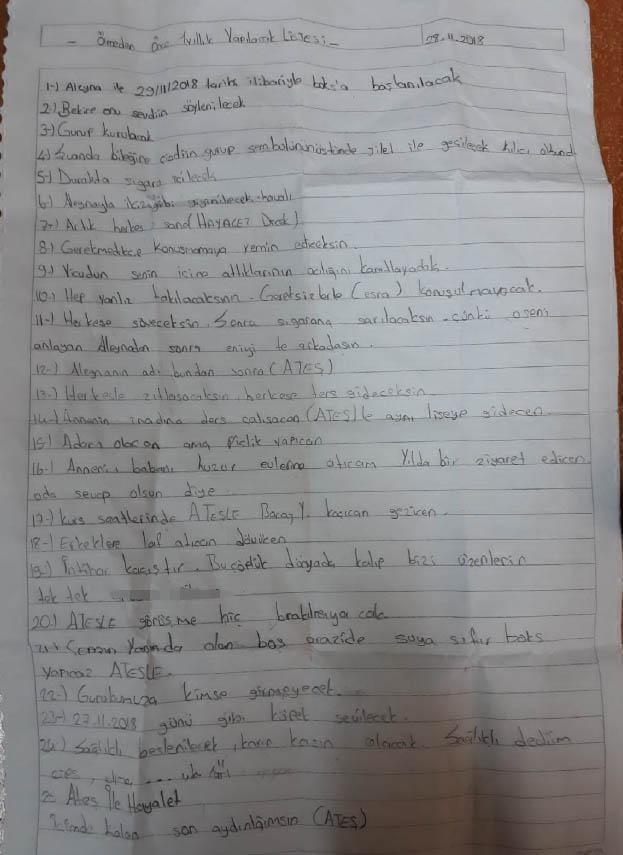 - Ölmeden Önce 1 yıllık Yapılacak Listesi - 28.11.2018
1-) Aleyna ile 29/11/2018 tarihi itibariyle boks'a başlanılacak
2-) Bekire onu sevdiğin söylenilecek
3-) Gurup kurulacak
4-) Şuanda bileğine çizdiğin gurup sembolünün üstünde jilet ile geçilecek kılıcı
5-) Durakta sigara içilecek
6-) Aleynayla ikiz gibi giyinilecek - havalı
7-) Artık herkes sana (HAYALET Dicek)
8-) Gerekmedikçe konuşmamaya yemin ediceksin.
9-) Vicudun senin içine attıklarının acılığını kanıtlayadık.
10-) Hep yanlız takılacaksın. Gereksizlerle (esra) konuşulmayacak.
11-) Herkese söveceksin. Sonra sigarana sarılacaksın çünkü o seni
anlayan Aleynadan sonra en iyi te arkadaşın.
12-) Aleynanın adı bundan sonra (ATEŞ)
13-) Herkesle zıtlaşacaksın, herkese ters gideceksin
14-) Annenin inadına ders çalışacan (ATEŞ) le aynı liseye gidecen
15-) Adam olacan ama piçlik yapıcan
16-) Anneni, babanı huzur evlerine atıcam Yılda bir ziyaret edicen
oda sevap olsun diye
17-) Kurs saatlerinde ATEŞLE Y. kaçıcan gezicen.
18-) Erkeklere laf atıcan dövücen
19-) İntihar kaçıştır. Bu çöplük dünyada kalıp bizi üzenlerin
tek tek
20-) ATEŞLE görüşme hiç bırakılmayacak
21-) yanında olan boş arazide suya sıfır boks
yapıcaz ATEŞLE.
22-) Gurubumuza kimse girmeyecek.
23-) 27.11.2018 günü gibi küfret sevilecek.
24-) Sağlıklı beslenilecek, karın kasın olacak. Sağlıklı dediim
....
= Ateş İle Hayalet
İçimde kalan son aydınlığımsın (ATEŞ)